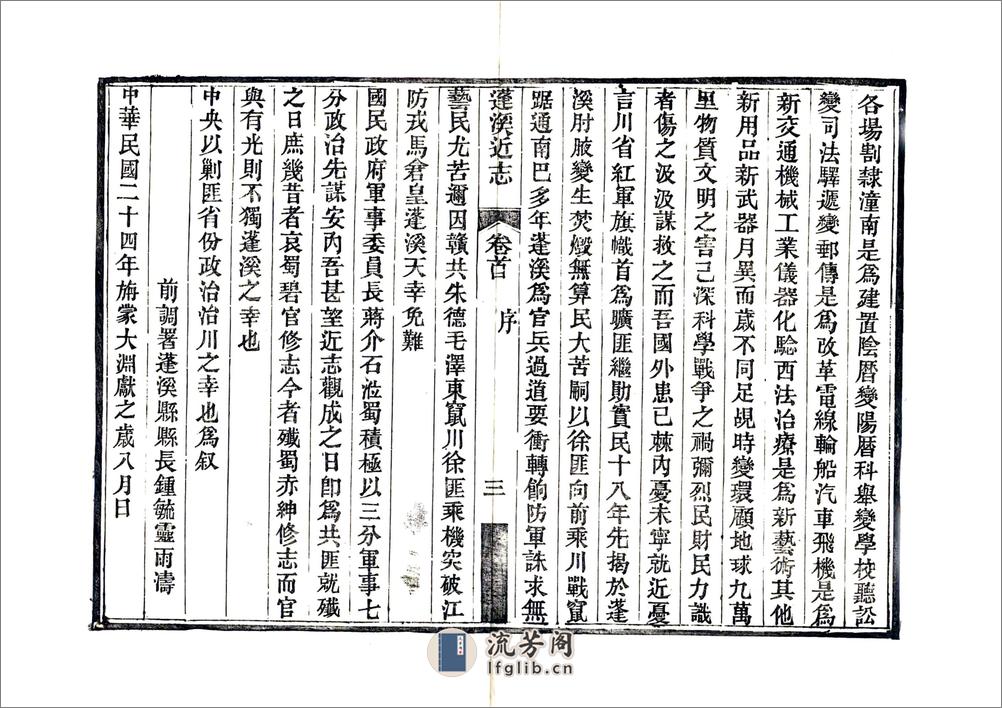 各場割隸潼南是爲建置陰曆變陽曆科舉變學校聽訟
變司法驛遞變郵傳是爲改革電線輪船汽車飛機是爲
新交通機械工業儀器化驗西法治療是爲新藝術其他
新用品新武器月異而歲不同足覘時變環顧地球九萬
里物質文明之害已深科學戰爭之禍彌烈民財民力識
者傷之汲汲謀救之而吾國外患已棘內憂未寧就近憂
言川省紅軍旗幟首爲曠匪繼勛實民十八年先揭於蓬
溪肘腋變生焚燬無算民大苦嗣以徐匪向前乘川戰竄
踞通南巴多年蓬溪爲官兵過道要衝轉餉防軍誅求無
蓬溪近志 卷首 序 三
藝民尤苦邇因贛共朱德毛澤東竄川徐匪乘機突破江
防戎馬倉皇蓬溪天幸免難
國民政府軍事委員長蔣介石涖蜀積極以三分軍事七
分政治先謀安內吾甚望近志觀成之日卽爲共匪就殲
之日庶幾昔者哀蜀碧官修志今者殲蜀赤紳修志而官
與有光則不獨蓬溪之幸也
中央以剿匪省份政治治川之幸也爲叙
前調署蓬溪縣縣長鍾毓靈雨濤
中華民國二十四年旃蒙大淵獻之歲八月日
流芳阁
lfglib.cn